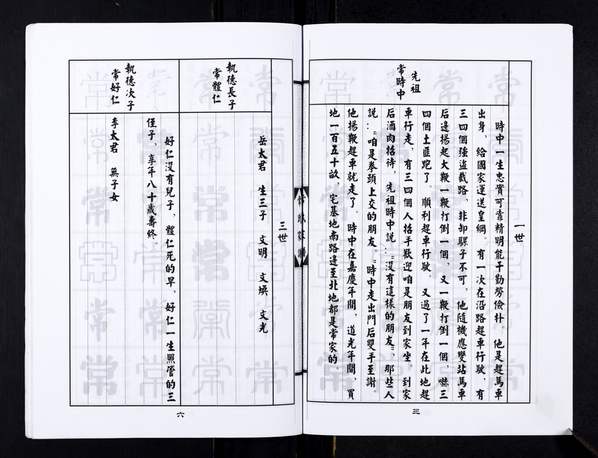 一世
先祖
常時中
時中一生忠實可靠精明能干勤勞儉朴，他是趕馬車
出身，給國家運送皇綱，有一次在沿路趕車行駛，有
三四個強盜截路，非卸騾子不可，他隨機應變站馬車
后邊揚起大鞭一鞭打倒一個，又一鞭打倒一個，嚇三
四個土匪跑了，順利趕車行駛，又過了一年在此地趕
車行走，有三四個人招手歡迎咱是朋友到家坐，到家
后酒肉招待，先祖時中說："沒有這樣的朋友"，那些人
說："咱是拳頭上交的朋友。"時中走出門后雙手至謝，
他揚鞭趕車就走了，時中在嘉慶年間，道光年間，買
地一百五十畝，宅基地南路邊至北地都是常家的
三
三世
岳太君 生三子 文明 文煥 文光
執德長子
常體仁
好仁沒有兒子，體仁死的早，好仁一生照管的三
侄子，享年八十歲壽終
執德次子
常好仁
李太君 無子女
六